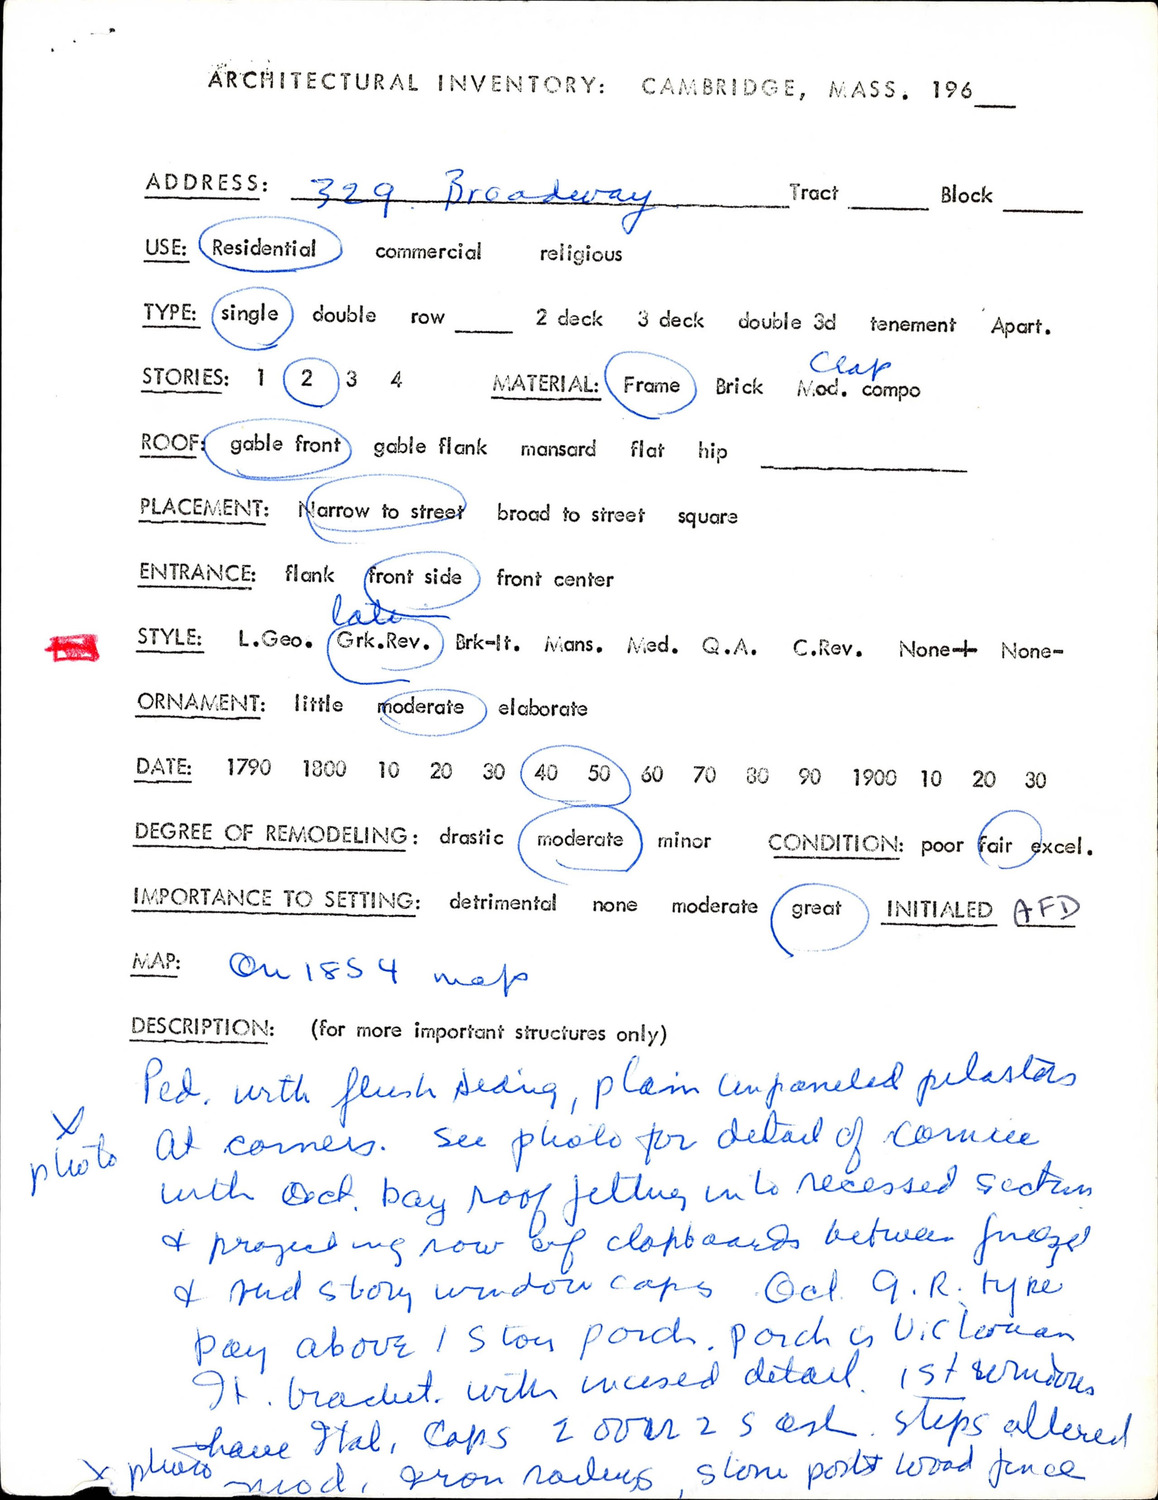 ARCHITECTURAL INVENTORY: CAMBRIDGE, MASS. 196___
ADDRESS: 329 Broadway Tract ______ Block ______
USE: Residential commercial religious
TYPE: single double row ____ 2 deck 3 deck double 3d tenement Apart.
Clap
STORIES: 1 2 3 4 MATERIAL: Frame Brick Mod. compo
ROOF: gable front gable flank mansard flat hip ______
PLACEMENT: Narrow to street broad to street square
ENTRANCE: flank front side front center
late
STYLE: L.Geo. Grk.Rev. Brk-It. Mans. Med. Q.A. C.Rev. None+ None-
ORNAMENT: little moderate elaborate
DATE: 1790 1800 10 20 30 40 50 60 70 80 90 1900 10 20 30
DEGREE OF REMODELING: drastic moderate minor CONDITION: poor fair excel.
IMPORTANCE TO SETTING: detrimental none moderate great INITIALED AFD
MAP: On 1854 map
DESCRIPTION: (for more important structures only)
Ped. with flush siding, plain unpaneled pilasters
x
photo
at corners. See photo for detail of cornice
with Oct. bay roof jetting into recessed section
& projecting row of clapboards between frieze
& 2nd story window caps Oct. G.R. type
bay above 1 story porch. Porch is Victorian
It. bracket. with incised detail. 1st windows
have Ital. Caps 2 over 2 sash. Steps altered
x photo mod. iron railings, stone posts wood fence